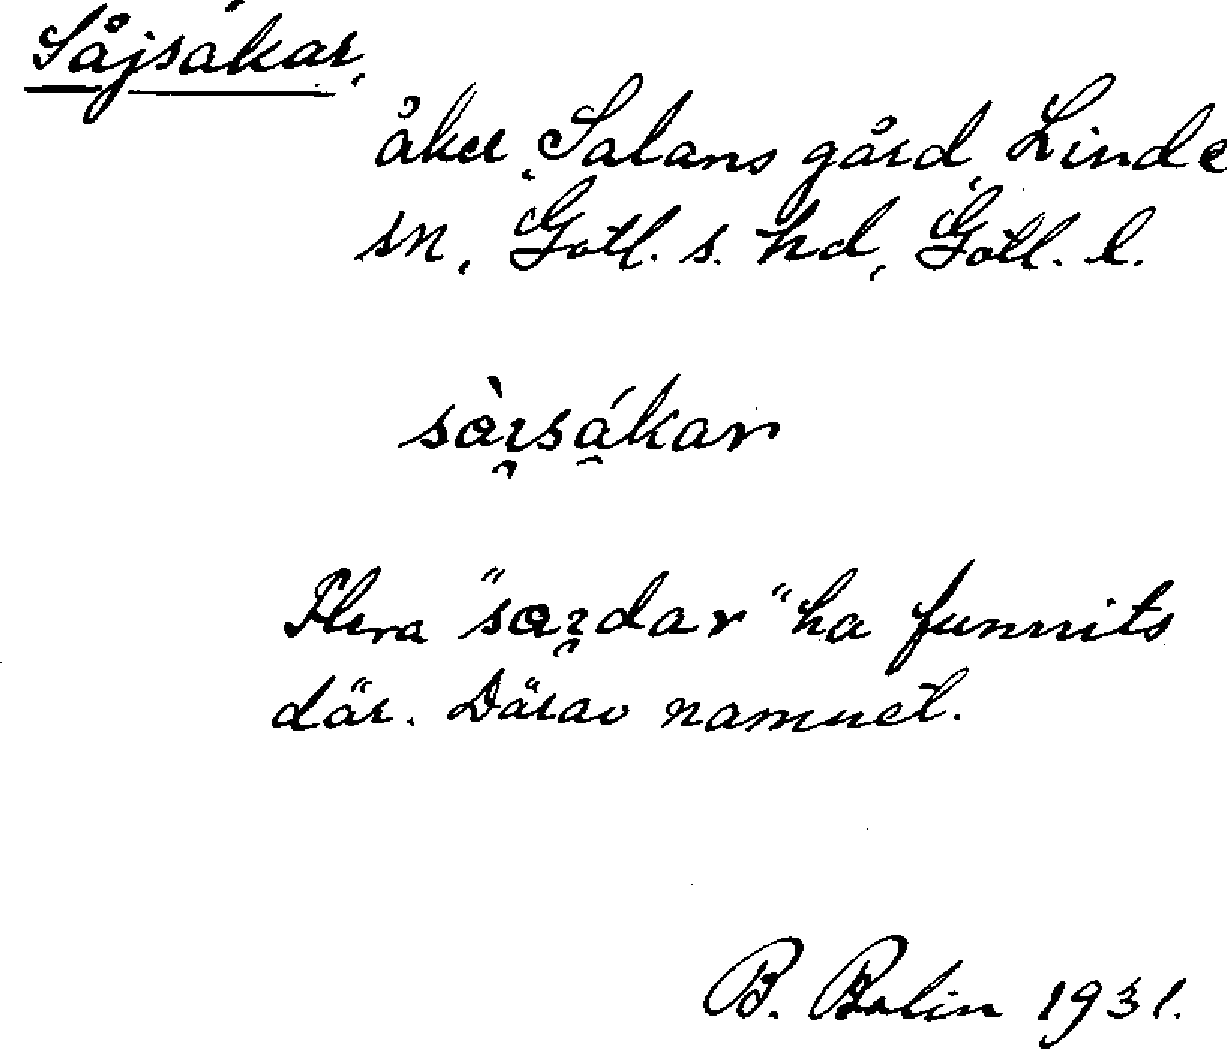 Såjsákar,
åker, Salans gård, Linde
sn, Gotl. s. hd, Gotl. l.
Flera " " ha funnits
där. Därav namnet.
B. Bolin 1931.